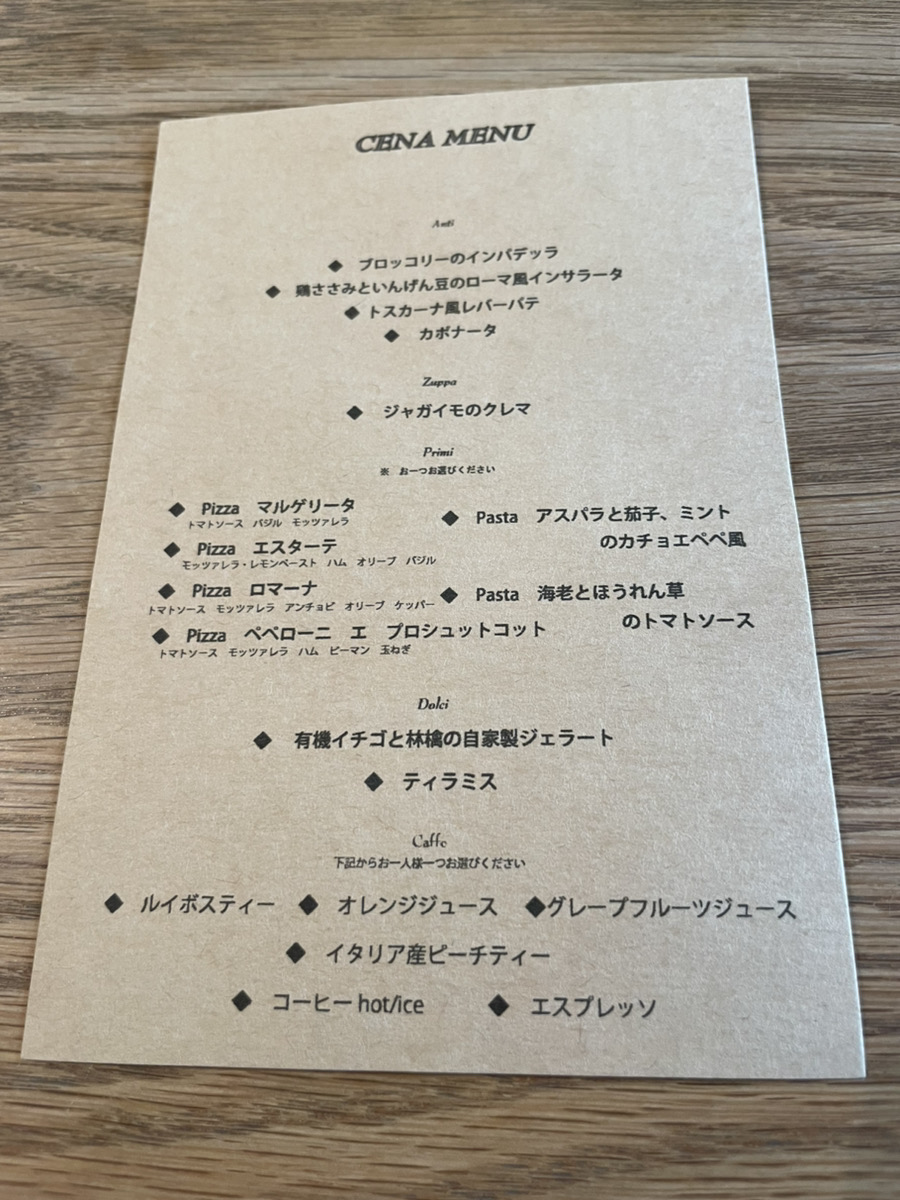 CENA MENU
Anti
◆ ブロッコリーのインパデッラ
◆ 鶏ささみといんげん豆のローマ風インサラータ
◆ トスカーナ風レバーパテ
◆ カポナータ
Zuppa
◆ ジャガイモのクレマ
Primi
※ お一つお選びください
◆ Pizza マルゲリータ
トマトソース バジル モッツァレラ
◆ Pizza エスターテ
モッツァレラ・レモンペースト ハム オリーブ バジル
◆ Pizza ロマーナ
トマトソース モッツァレラ アンチョビ オリーブ ケッパー
◆ Pizza ペペローニ エ プロシュットコット
トマトソース モッツァレラ ハム ピーマン 玉ねぎ
◆ Pasta アスパラと茄子、ミント
のカチョエペペ風
◆ Pasta 海老とほうれん草
のトマトソース
Dolci
◆ 有機イチゴと林檎の自家製ジェラート
◆ ティラミス
Caffe
下記からお一人様一つお選びください
◆ ルイボスティー ◆ オレンジジュース ◆グレープフルーツジュース
◆ イタリア産ピーチティー
◆ コーヒー hot/ice ◆ エスプレッソ